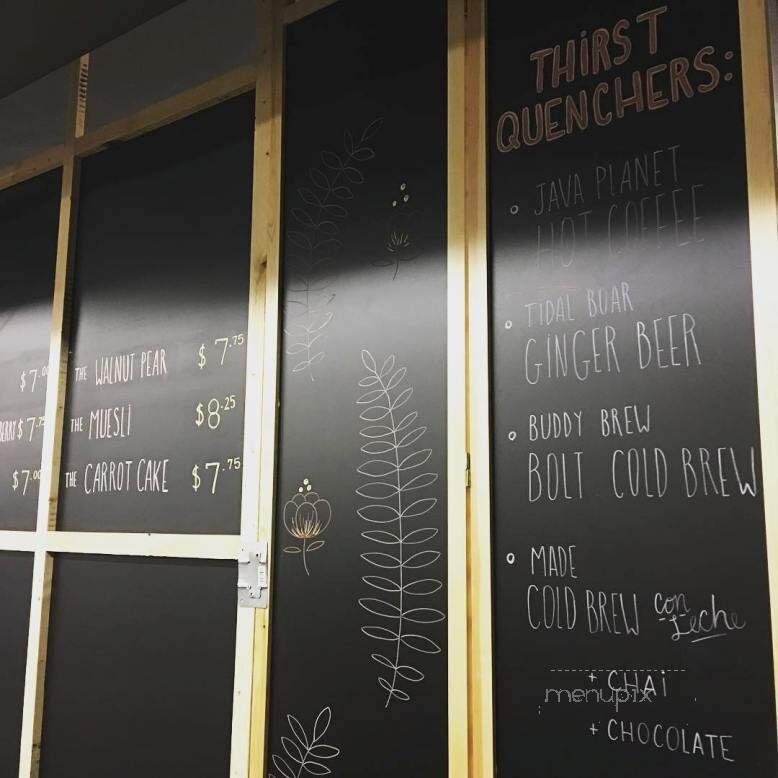 $7.00
THE WALNUT PEAR $7.75
$7.75
THE MUESLI $8.25
$7.00
THE CARROT CAKE $7.75
THIRST
QUENCHERS:
JAVA PLANET
HOT COFFEE
TIDAL BOAR
GINGER BEER
BUDDY BREW
BOLT COLD BREW
MADE
COLD BREW con Leche
+ CHAI
menupix
+ CHOCOLATE